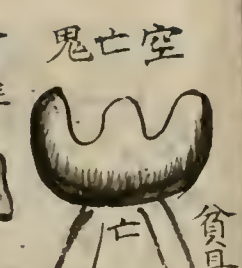 空亡鬼
亡
貧